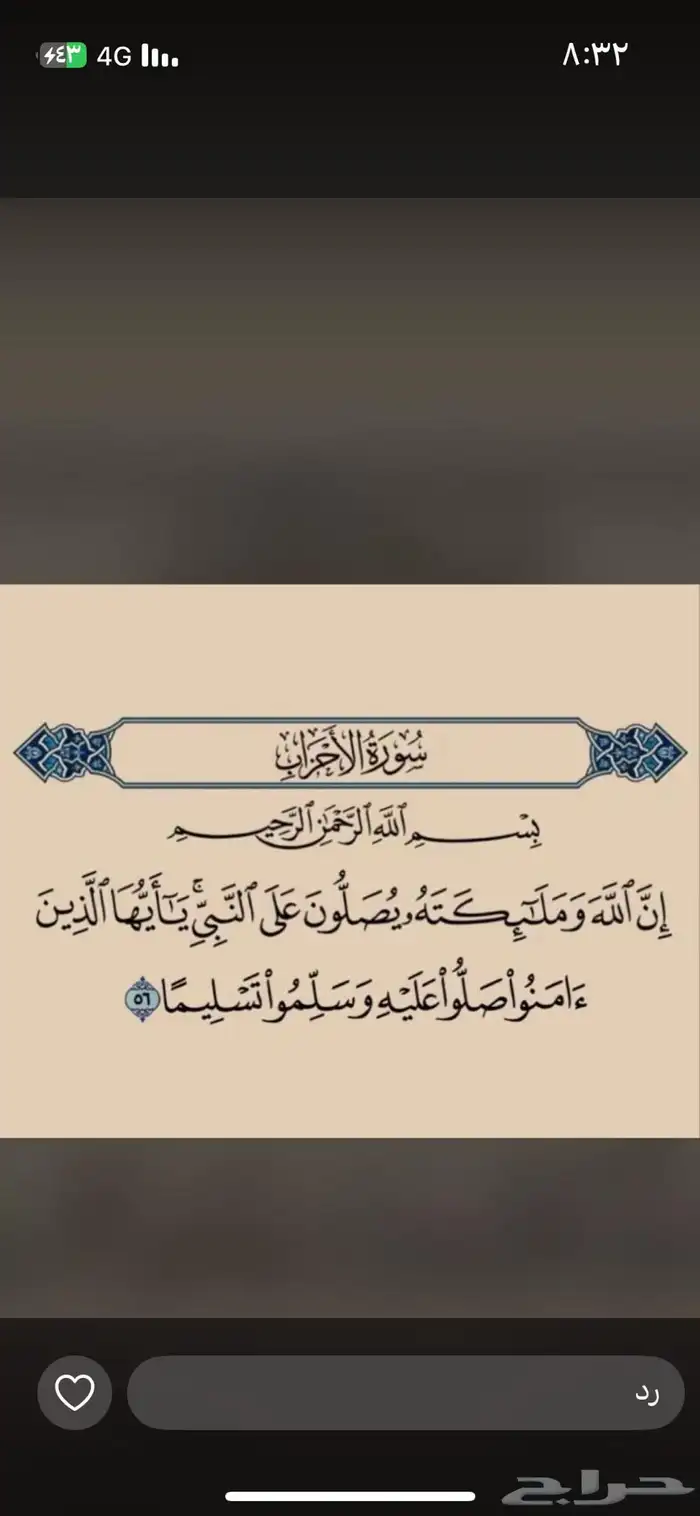 ٨:٣٢ 4G ٤٣
سُورَةُ الأَحْزَابِ
بِسْمِ ٱللَّهِ ٱلرَّحْمَٰنِ ٱلرَّحِيمِ
إِنَّ ٱللَّهَ وَمَلَٰٓئِكَتَهُۥ يُصَلُّونَ عَلَى ٱلنَّبِيِّۚ يَٰٓأَيُّهَا ٱلَّذِينَ
ءَامَنُوا۟ صَلُّوا۟ عَلَيْهِ وَسَلِّمُوا۟ تَسْلِيمًا ٥٦
رد
حراج